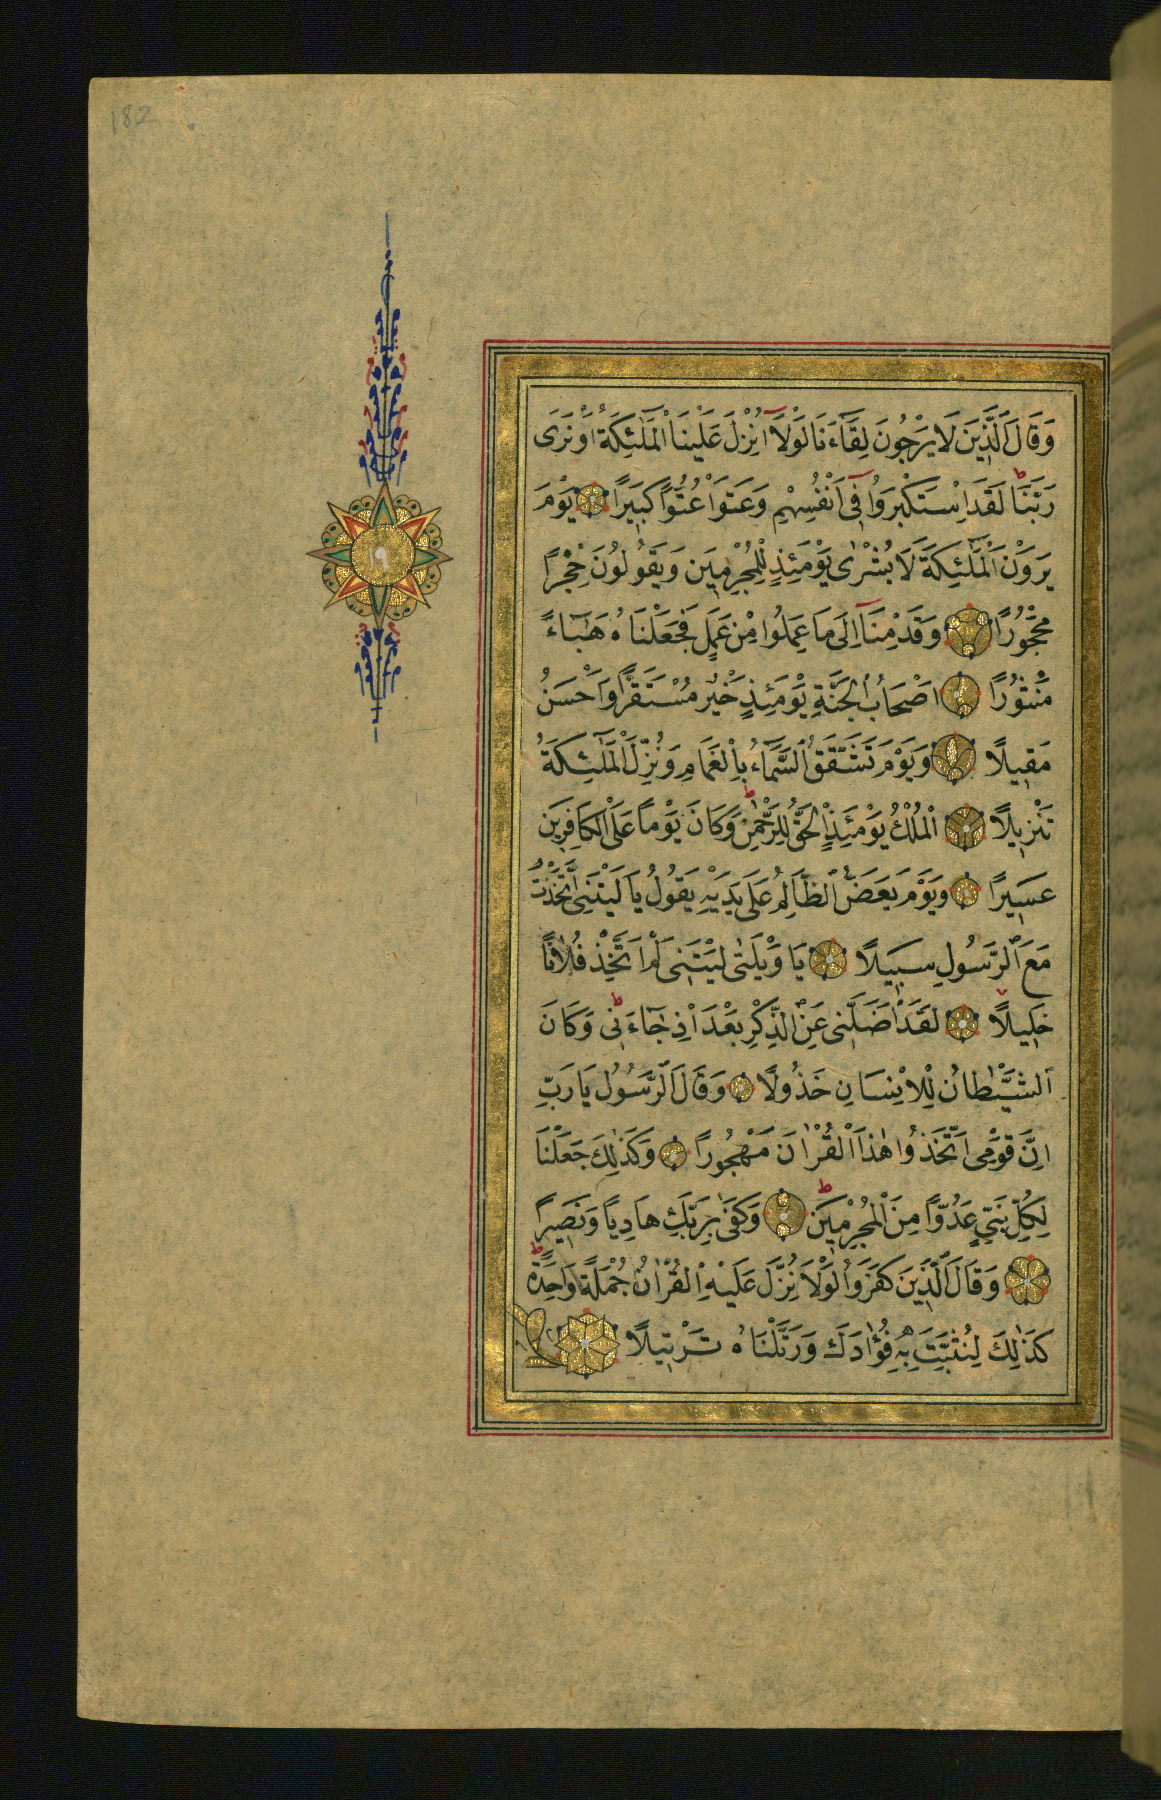 182
١٩
وَقَالَ ٱلَّذِينَ لَا يَرْجُونَ لِقَآءَنَا لَوْلَآ اُنْزِلَ عَلَيْنَا الْمَلٰٓئِكَةُ اَوْ نَرٰى
رَبَّنَا لَقَدِ اسْتَكْبَرُوا فِٓى اَنْفُسِهِمْ وَعَتَوْا عُتُوًّا كَبِيرًا يَوْمَ
يَرَوْنَ الْمَلٰٓئِكَةَ لَا بُشْرٰى يَوْمَئِذٍ لِلْمُجْرِمِينَ وَيَقُولُونَ حِجْرًا
مَحْجُورًا وَقَدِمْنَآ اِلٰى مَا عَمِلُوا مِنْ عَمَلٍ فَجَعَلْنَاهُ هَبَآءً
مَنْثُورًا اَصْحَابُ الْجَنَّةِ يَوْمَئِذٍ خَيْرٌ مُسْتَقَرًّا وَاَحْسَنُ
مَقِيلًا وَيَوْمَ تَشَقَّقُ السَّمَآءُ بِالْغَمَامِ وَنُزِّلَ الْمَلٰٓئِكَةُ
تَنْزِيلًا اَلْمُلْكُ يَوْمَئِذٍ الْحَقُّ لِلرَّحْمٰنِ وَكَانَ يَوْمًا عَلَى الْكَافِرِينَ
عَسِيرًا وَيَوْمَ يَعَضُّ الظَّالِمُ عَلٰى يَدَيْهِ يَقُولُ يَا لَيْتَنِى اتَّخَذْتُ
مَعَ الرَّسُولِ سَبِيلًا يَا وَيْلَتٰى لَيْتَنِى لَمْ اَتَّخِذْ فُلَانًا
خَلِيلًا لَقَدْ اَضَلَّنِى عَنِ الذِّكْرِ بَعْدَ اِذْ جَآءَنِى وَكَانَ
الشَّيْطَانُ لِلْاِنْسَانِ خَذُولًا وَقَالَ الرَّسُولُ يَا رَبِّ
اِنَّ قَوْمِى اتَّخَذُوا هٰذَا الْقُرْاٰنَ مَهْجُورًا وَكَذٰلِكَ جَعَلْنَا
لِكُلِّ نَبِىٍّ عَدُوًّا مِنَ الْمُجْرِمِينَ وَكَفٰى بِرَبِّكَ هَادِيًا وَنَصِيرًا
وَقَالَ الَّذِينَ كَفَرُوا لَوْلَا نُزِّلَ عَلَيْهِ الْقُرْاٰنُ جُمْلَةً وَاحِدَةً
كَذٰلِكَ لِنُثَبِّتَ بِهِ فُؤَادَكَ وَرَتَّلْنَاهُ تَرْتِيلًا